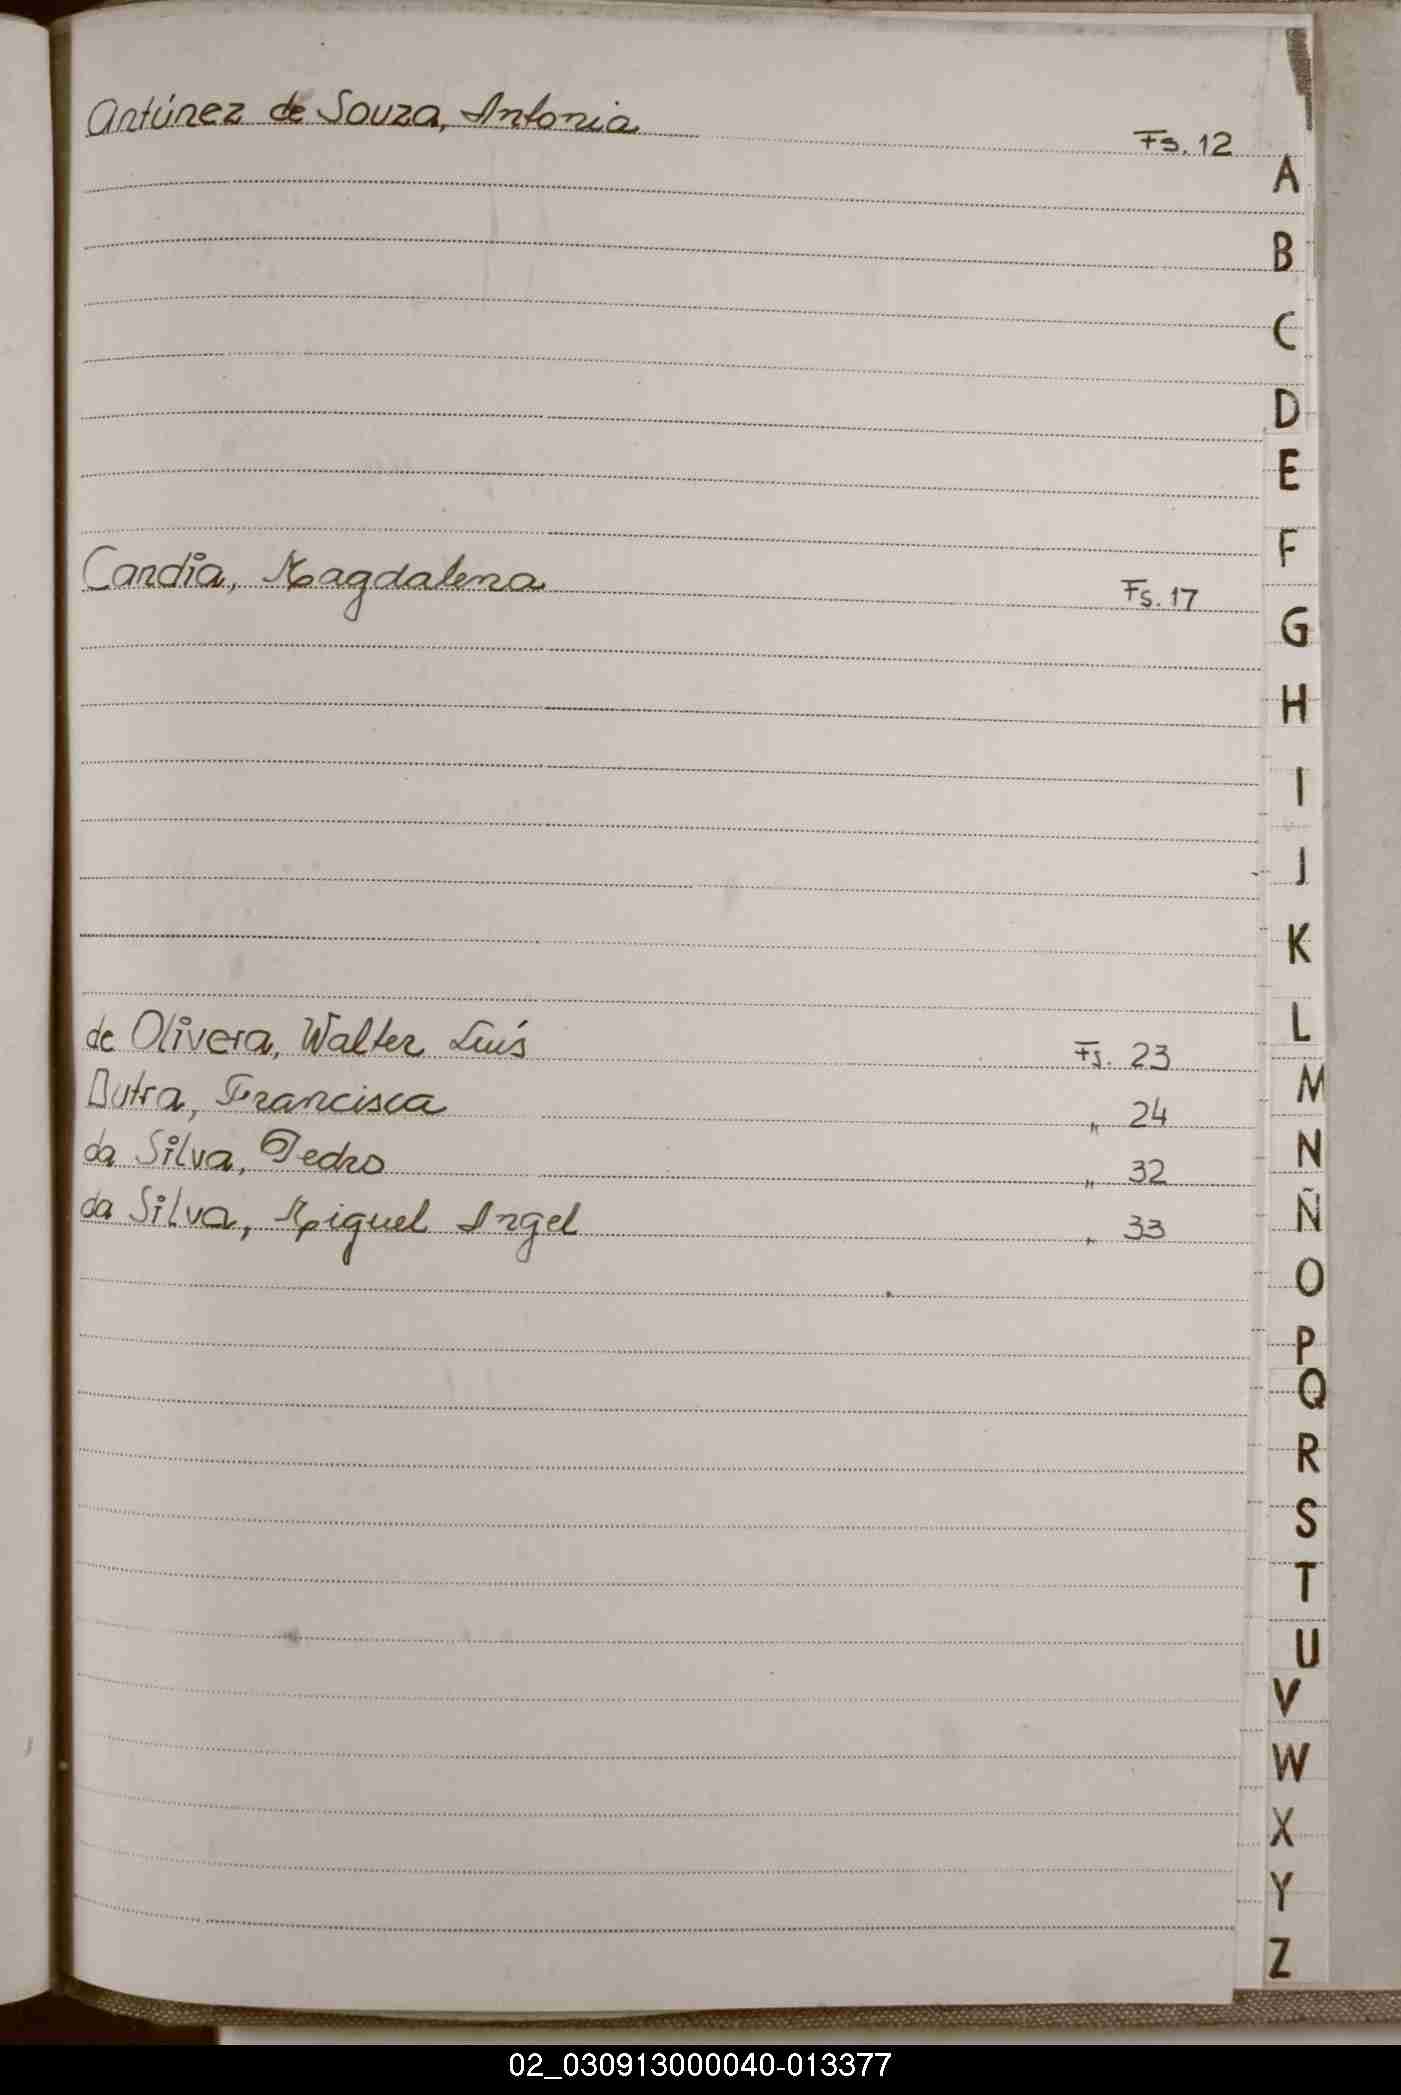 Antúnez de Souza, Antonia Fs. 12
Candia, Magdalena Fs. 17
de Olivera, Walter Luís Fs. 23
Dutra, Francisca " 24
da Silva, Pedro " 32
da Silva, Miguel Angel " 33
A
B
C
D
E
F
G
H
I
J
K
L
M
N
Ñ
O
P
Q
R
S
T
U
V
W
X
Y
Z
02_030913000040-013377